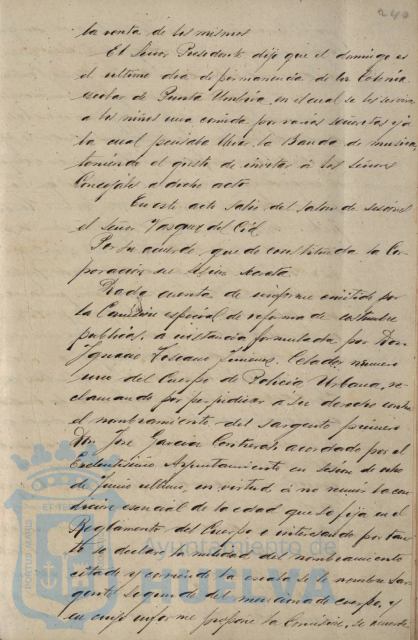 240
la venta de los mismos
El Señor Presidente dijo que el domingo es
el ultimo dia de permanencia de la Colonia
escolar de Punta Umbria, en el cual se les servira
a los niños una comida por varias señoritas y a
la cual pensaba llevar la Banda de musica,
teniendo el gusto de invitar á los señores
Concejales a dicho acto.
En este acto salió del salon de sesiones
el Señor Vazquez del Cid.
Por su acuerdo que de constituida la Cor
poracion se
Dada cuenta de informe emitido por
la Comision especial de reforma de
publica, á instancia formulada por Don
Ignacio Toscano Jimenez, Celador numero
uno del Cuerpo de Policia Urbana, re-
clamando por perjudicar a su derecho contra
el nombramiento del sargento primero
Don José Garcia Contreras acordado por el
Excelentisimo Ayuntamiento en sesion de ocho
de Junio ultimo, en virtud á no reunir la con
dicion esencial de la edad que se fija en el
Reglamento del Cuerpo e interesando por tan
to se declare la nulidad del nombramiento
citado y se le nombre sar
gento segundo del mencionado cuerpo, y
en cuyo informe propone la Comision, se acuerde
PORTUS MARIS ET TERRAE CUSTODIA
Ayuntamiento de
HUELVA